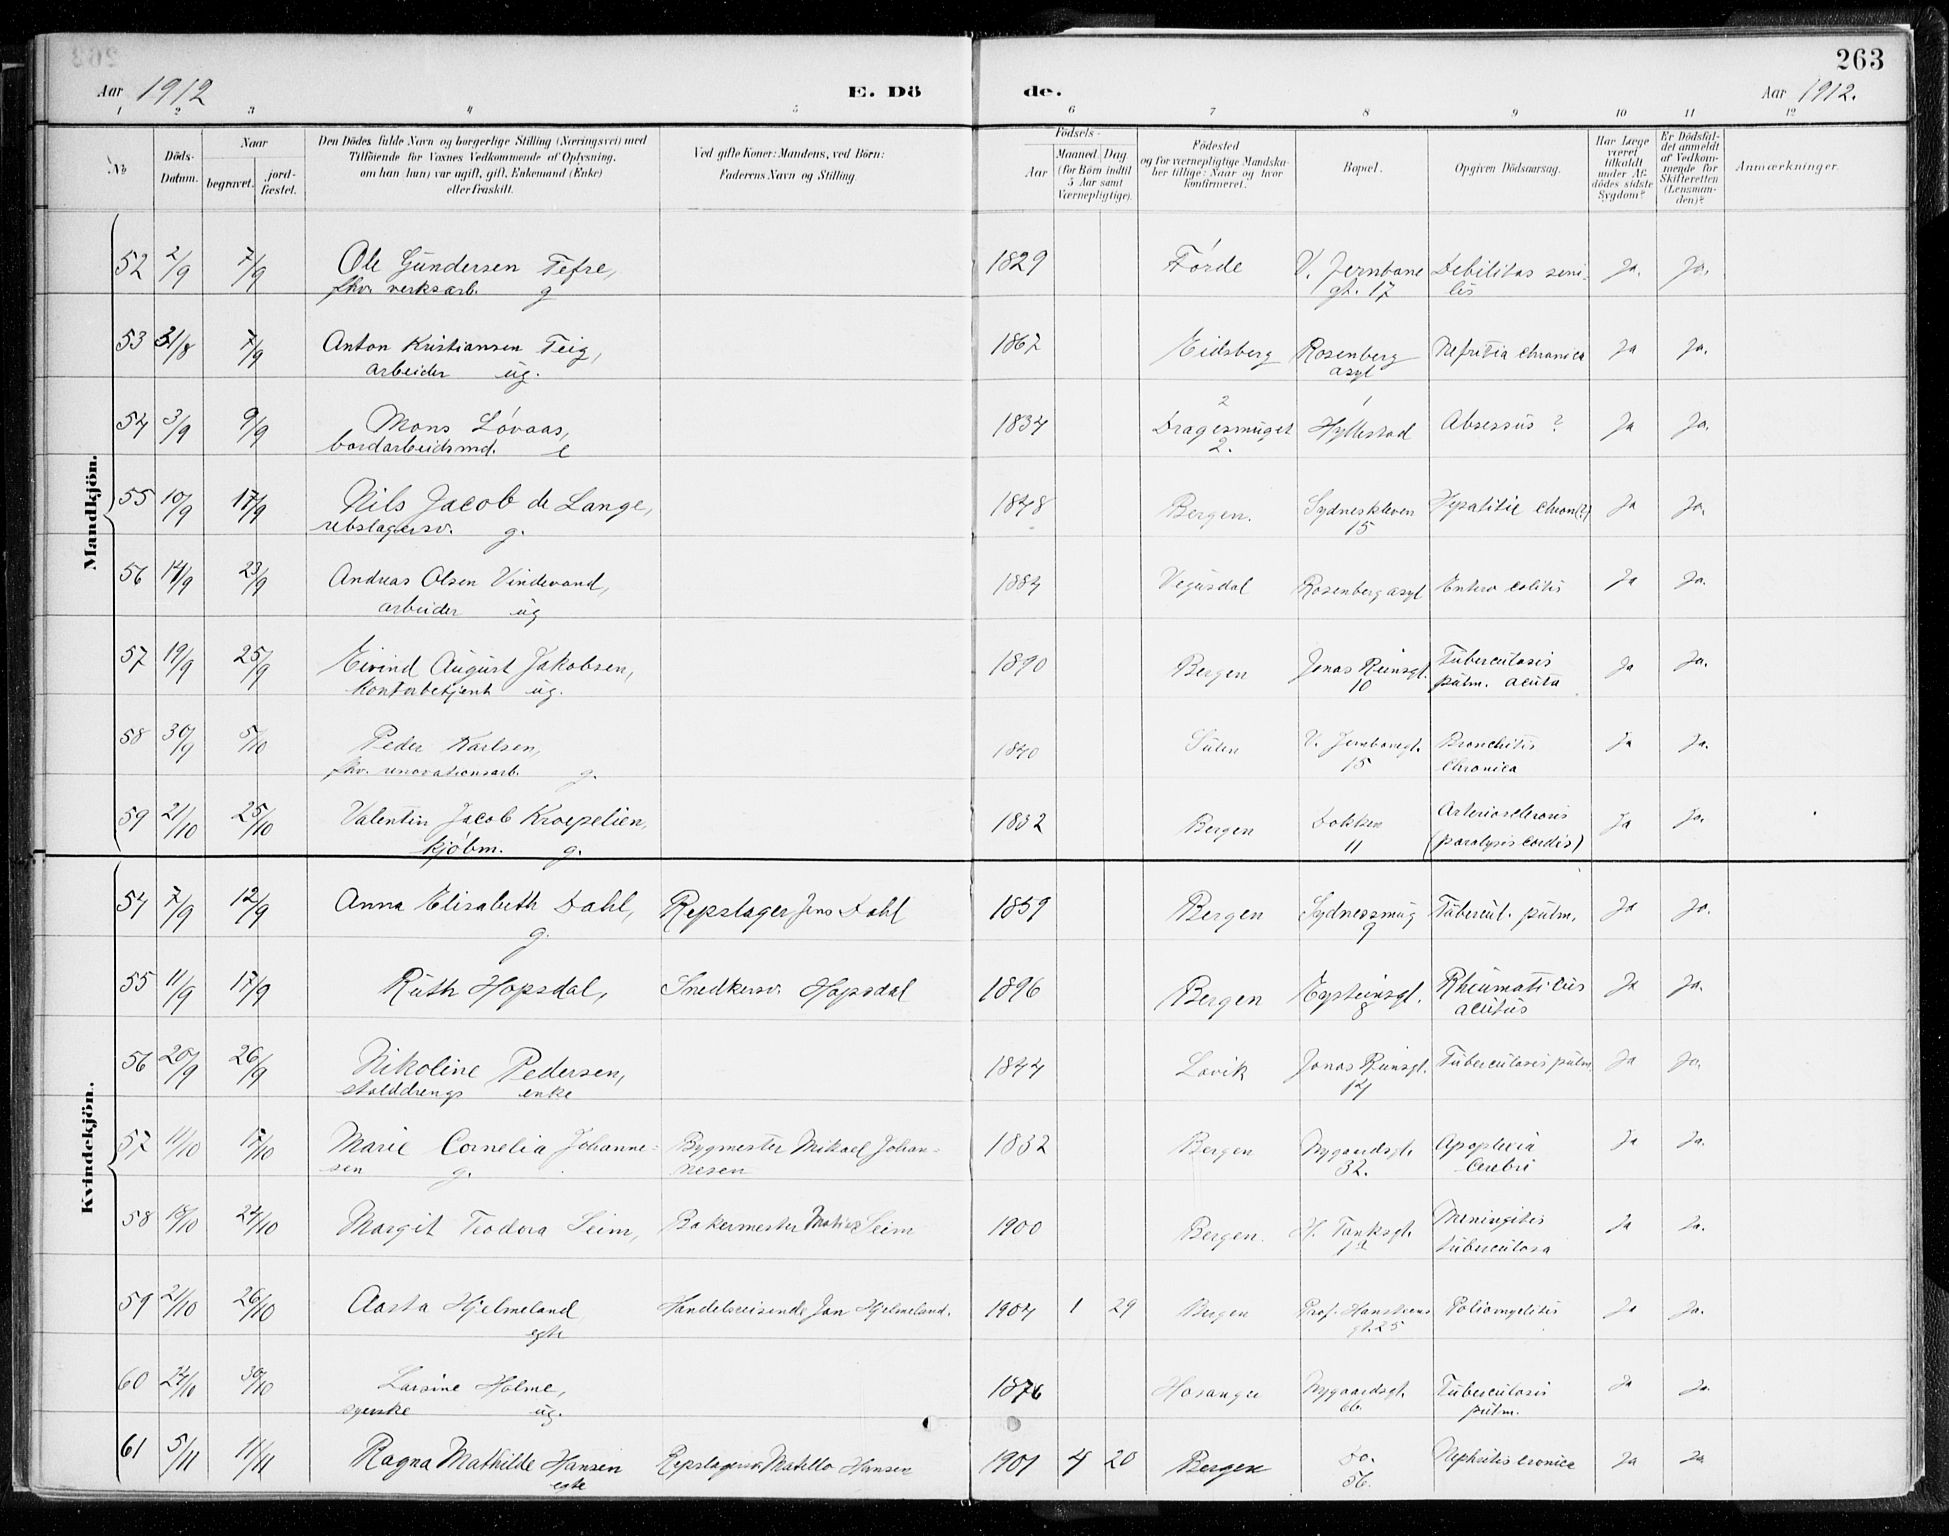 263
Aar 1912 E. Dö de. Aar 1912.
1 2 3 4 5 6 7 8 9 10 11 12
No Döds-Datum. Naar begravet. jord-fæstet. Den Dödes fulde Navn og borgerlige Stilling (Næringsvei) med Tilföiende for Voxnes Vedkommende af Oplysning, om han (hun) var ugift, gift, Enkemand (Enke) eller fraskilt. Ved gifte Koner: Mandens, ved Börn: Faderens Navn og Stilling. Födsels- Aar Maaned Dag (for Börn indtil 5 Aar samt Værnepligtige). Födested og for værnepligtige Mandskaber tillige: Naar og hvor konfirmeret. Bopæl. Opgiven Dödsaarsag. Har Læge været tilkaldt under Afdödes sidste Sygdom? Er Dödsfaldet anmeldt af Vedkommende for Skifteretten (Lensmanden)? Anmærkninger.
Mandkjön.
52 2/9 7/9 Ole Gundersen Tefre, 1829 Førde V. Jernbane Debilitas seni- Ja. Ja.
fhv. verksarb. g gt. 17 lis
53 31/8 7/9 Anton Kristiansen Teig, 1867 Eidsberg Rosenberg Nefritia chronica Ja Ja.
arbeider ug. asyl
54 3/9 9/9 Mons Løvaas, 1834 2 Dragesmuget 1 Hyllestad Absessus ? Ja Ja.
bordarbeidsmd. e 2.
55 10/9 17/9 Nils Jacob de Lange, 1848 Bergen. Sydneskleven Hepatitie chron(?) Ja Ja.
rebslagersv. g. 15
56 14/9 23/9 Andreas Olsen Vindevand, 1884 Vegusdal Rosenberg asyl Entero colitis Ja Ja.
arbeider ug
57 19/9 25/9 Eivind August Jakobsen, 1890 Bergen Jonas Reinsgt. Tuberculosis Ja Ja.
kontorbetjent ug. 10 pulm. acuta
58 30/9 5/10 Peder Karlsen, 1840 Sulen V. Jernbanegt. Bronchitis Ja Ja.
fhv. renovationsarb. g. 15 chronica
59 21/10 25/10 Valentin Jacob Kroepelien, 1832 Bergen Dokken Arteriosclerosis Ja Ja.
kjøbm. g. 11 (paralysis cordis)
Kvindekjön.
54 7/9 12/9 Anna Elisabeth Dahl, Repslager Jens Dahl 1859 Bergen Sydnessmug Tubercul. pulm. Ja Ja.
g. 9
55 11/9 17/9 Ruth Hopsdal, Snedkersv. Hopsdal 1896 Bergen Eysteinsgt. Rheumaticus Ja Ja.
8 acutus
56 20/9 26/9 Nikoline Pedersen, 1844 Lavik Jonas Reinsgt. Tuberculosis pulm. Ja Ja.
stalddrengs enke 14
57 11/10 17/10 Marie Cornelia Johanne- Bygmester Mikael Johan- 1832 Bergen Nygaardsgt. Apoplexia Ja Ja.
sen g. nesen 32. cerebri
58 18/10 24/10 Margit Teodora Seim, Bakermester Matias Seim 1900 Bergen. H. Tanksgt. Meningitis Ja Ja.
tuberculosa
59 21/10 26/10 Aasta Hjelmeland Handelsreisende Jan Hjelmeland. 1904 1 29 Bergen Prof. Hansteens Poliomyelitis Ja Ja.
egte gt. 25
60 24/10 30/10 Larsine Holme, 1876 Hosanger Nygaardsgt. Tuberculosis Ja Ja.
syerske ug. 66 pulm.
61 5/11 11/11 Ragna Mathilde Hansen Hansen 1901 4 20 Bergen do. Nephritis cronica Ja Ja
egte 56.